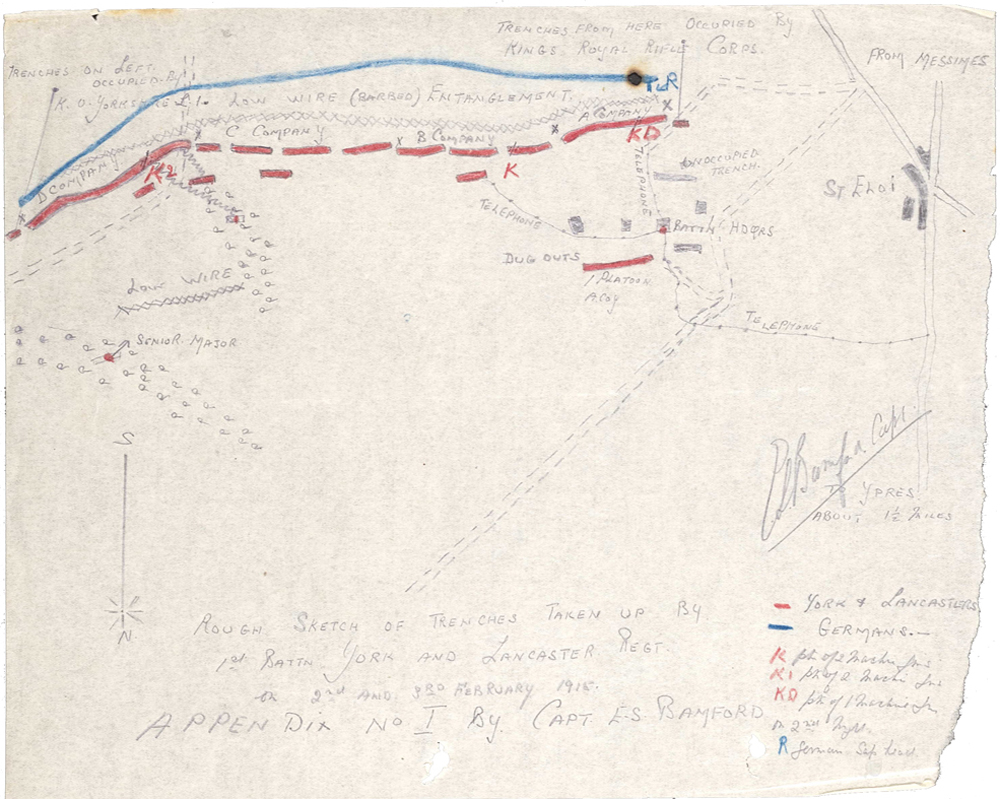 TRENCHES FROM HERE OCCUPIED BY
KINGS ROYAL RIFLE CORPS.
FROM MESSINES
TRENCHES ON LEFT
OCCUPIED BY
K. O. YORKSHIRE L.I.
LOW WIRE (BARBED) ENTANGLEMENT.
R
D COMPANY
C COMPANY
B COMPANY
A COMPANY
K2
K
KD
TELEPHONE
UNOCCUPIED
TRENCH.
ST ELOI
TELEPHONE
BATTN HDQRS
DUG OUTS
1 PLATOON
A COY
LOW WIRE
TELEPHONE
SENIOR MAJOR
S
N
Bamford Capt.
TO YPRES
ABOUT 1½ MILES
ROUGH SKETCH OF TRENCHES TAKEN UP BY
1st BATTN. YORK AND LANCASTER REGT.
on 2nd AND 3RD FEBRUARY 1915.
APPENDIX No I BY CAPT. E.S. BAMFORD
YORK & LANCASTERS
GERMANS.
K
K1
KD
on 2nd Night.
R German Sap head